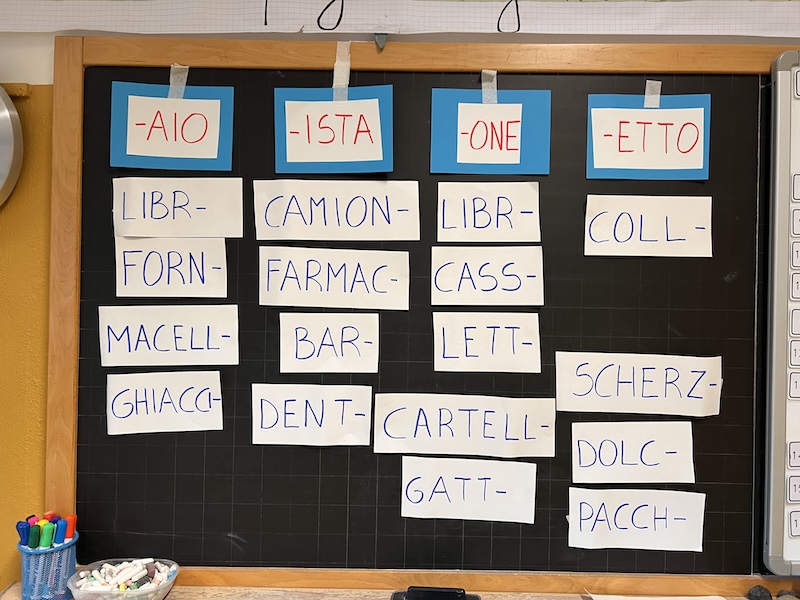 -AIO
LIBR-
FORN-
MACELL-
GHIACCI-
-ISTA
CAMION-
FARMAC-
BAR-
DENT-
-ONE
LIBR-
CASS-
LETT-
CARTELL-
GATT-
-ETTO
COLL-
SCHERZ-
DOLC-
PACCH-